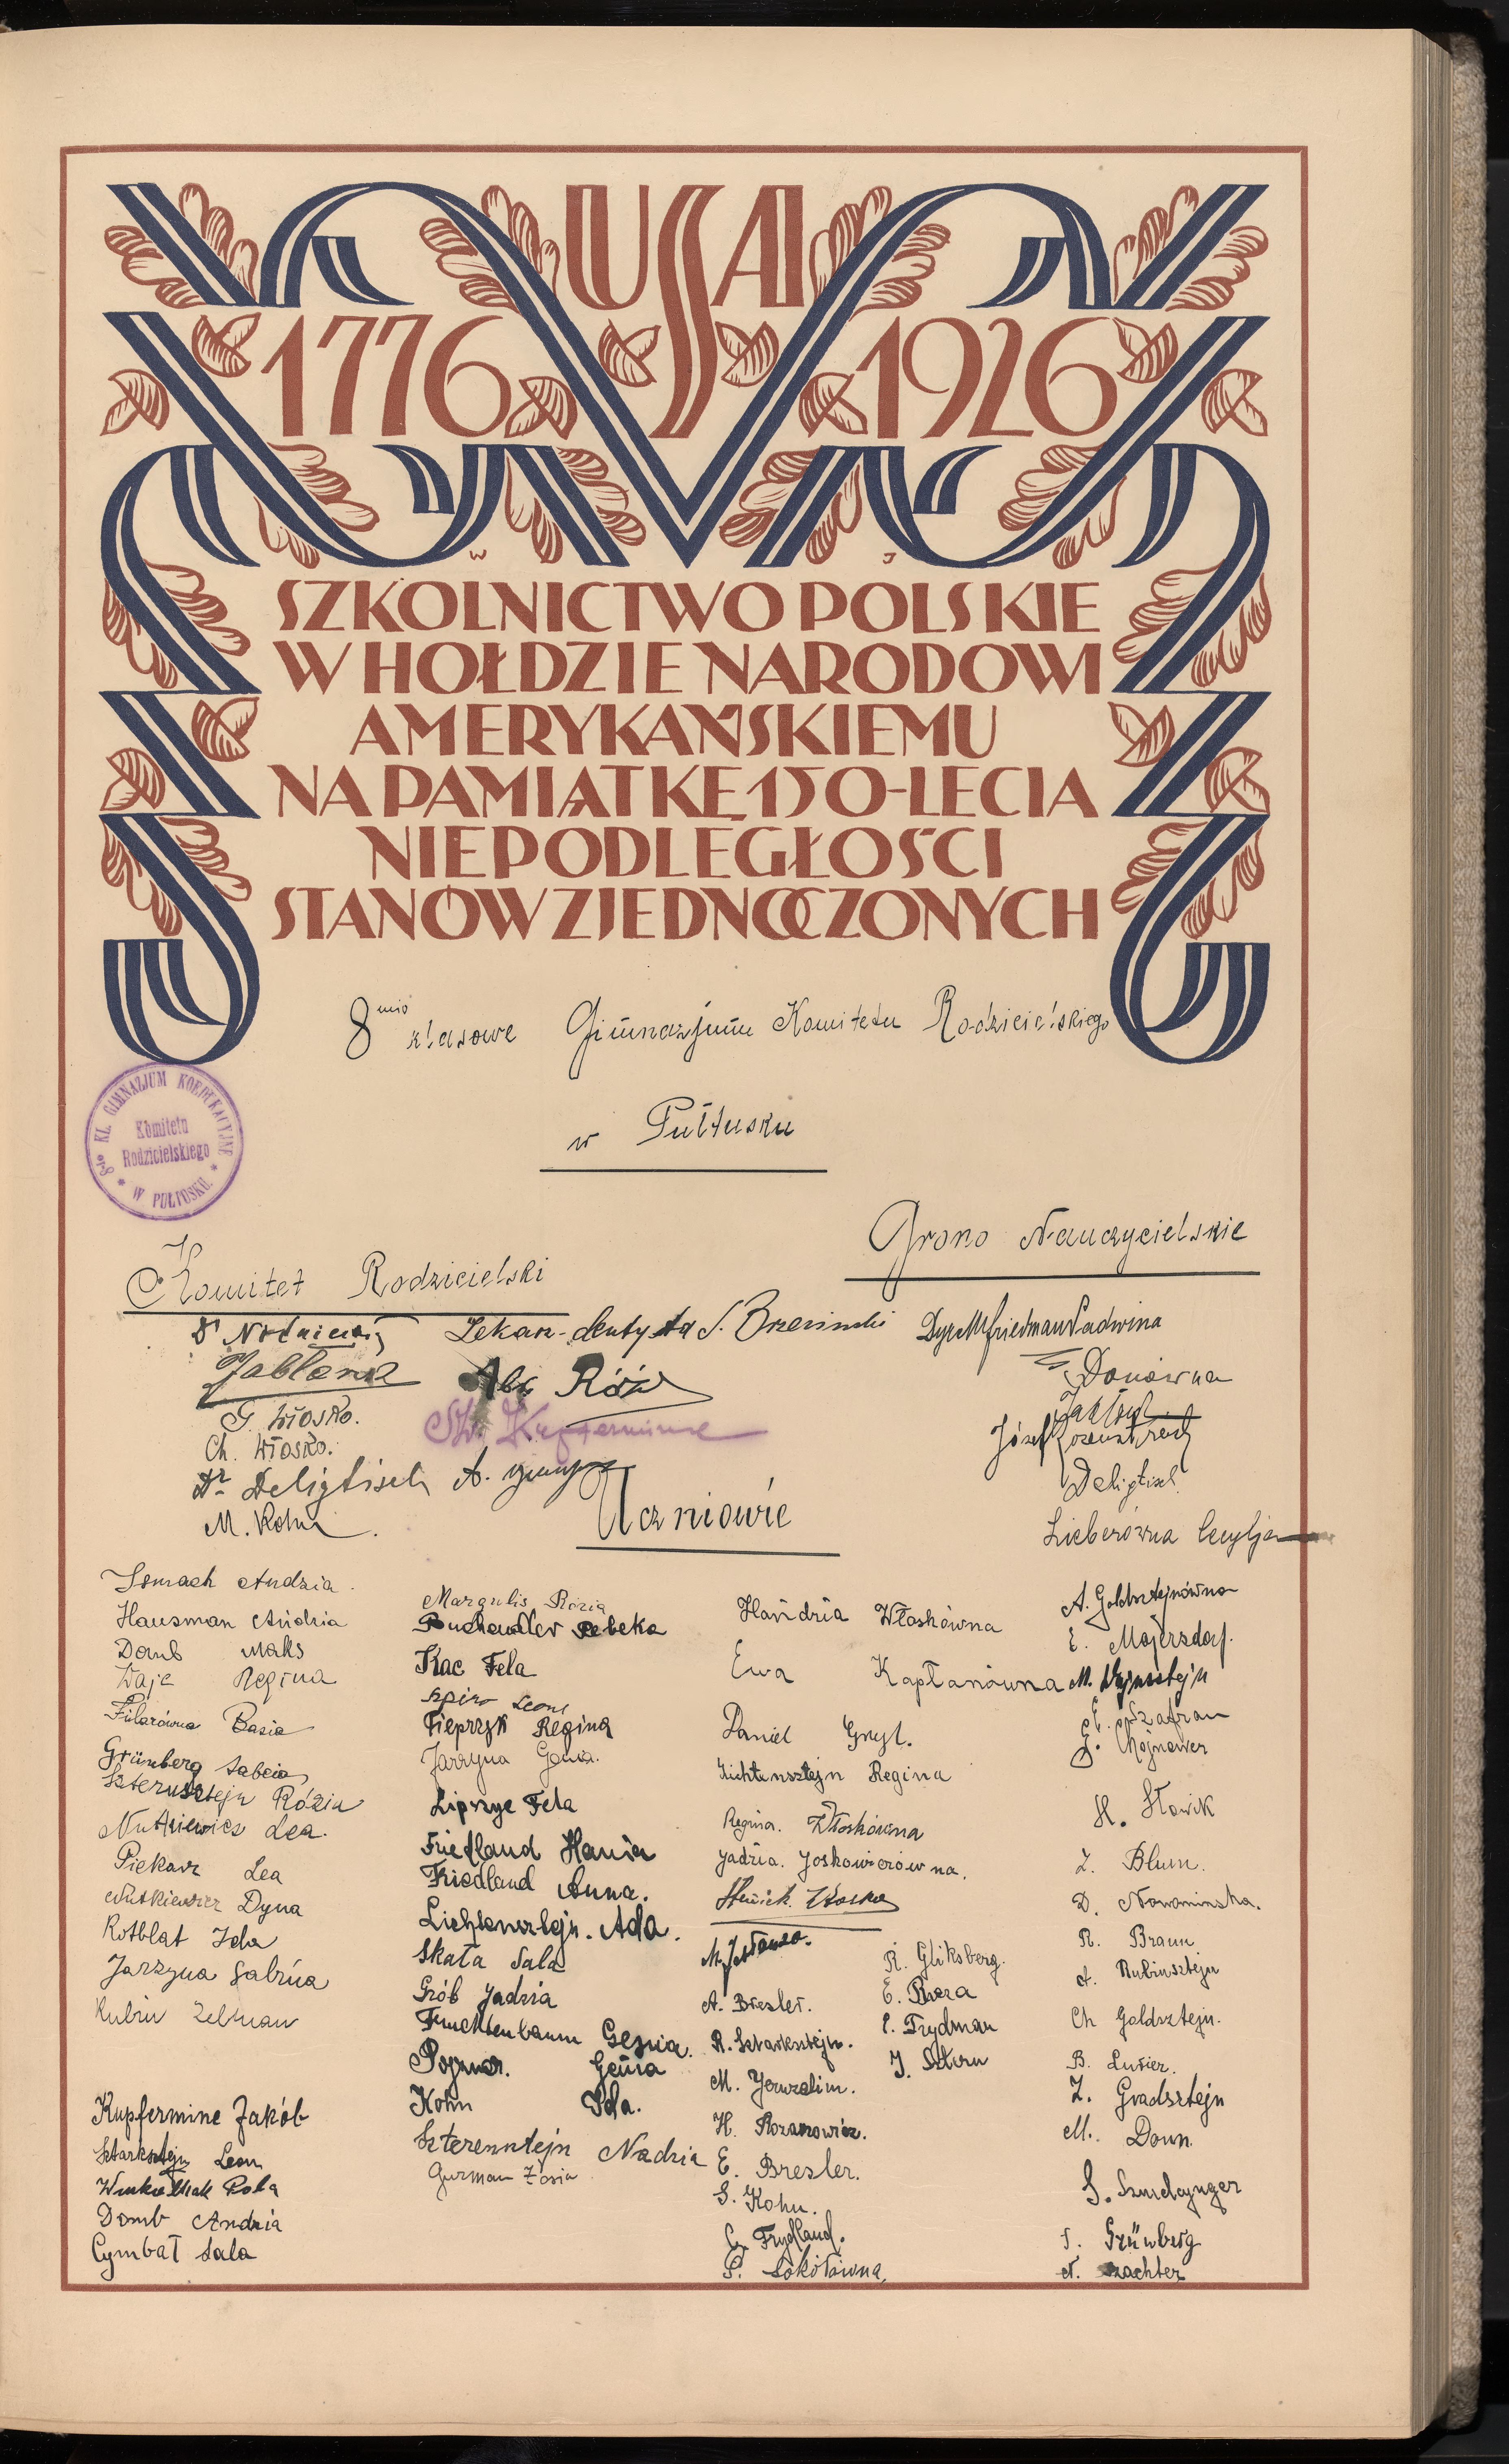 USA
1776 1926
W J
SZKOLNICTWO POLSKIE
W HOŁDZIE NARODOWI
AMERYKAŃSKIEMU
NA PAMIĄTKĘ 150-LECIA
NIEPODLEGŁOŚCI
STANÓW ZJEDNOCZONYCH
8mio klasowe Gimnazjum Komitetu Rodzicielskiego
w Pułtusku
8io KL. GIMNAZJUM KOEDUKACYJNE
Komitetu
Rodzicielskiego
* W PUŁTUSKU *
Grono Nauczycielskie
Komitet Rodzicielski
Lekarz-dentysta S. Brzeziński
Dyr M Friedman Ladwina
Jabłonka
Róż
G. Włosko.
Ch. Włosko.
Dr Deligtisch
M. Kohn
Donówna
Józef Rozensztrauch
Deligtisch
Lieberówna Cecylja
Uczniowie
Ismach Andzia.
Hausman Andzia
Domb Maks
Waje Regina
Filarówna Basia
Grünberg Sabcia
Szternsztejn Rózia
Nutkiewicz Lea.
Piekarz Lea
Nutkiewicz Dyna
Rotblat Ida
Jarzyna Sabrina
Rubin Zelman
Kupfermine Jakób
Sztarksztejn Leon
Pola
Domb Andzia
Cymbał Sala
Margulis Rózia
Buchandler Rebeka
Kac Fela
Szpiro Leons
Pieprzyk Regina
Jarzyna Genia.
Lipszyc Fela
Friedland Hania
Friedland Anna.
Lichtensztejn. Ada.
Skała Sala
Grób Jadzia
Fruchtenbaum Gesia.
Pozner. Genia
Kohn Ida.
Szterensztejn Nadzia
Gurman Zosia
Handzia Włoskówna
Ewa Kapłanówna
Daniel Gryl.
Lichtensztejn Regina
Regina. Włoskówna
Jadzia. Joskowiczówna.
Heniek. Włosko
A. Bresler.
R. Sztarksztejn.
M. Jeruzalim.
H. Rozanowicz.
E. Bresler.
S. Kohn.
C. Frydland.
P. Sokołówna,
R. Gliksberg.
E. Baza
E. Frydman
J. Sztern
A. Goldsztejnówna
E. Majersdorf.
M. Wajnsztejn
E. Szafran
G. Chojnower
H. Słowik
Z. Blum.
D. Nowominska.
R. Braun
A. Rubinsztejn
Ch Goldsztejn.
B. Lusier.
Z. Gradsztejn
M. Donn.
S. Szmelcynger
S. Grünberg
A. Szachter